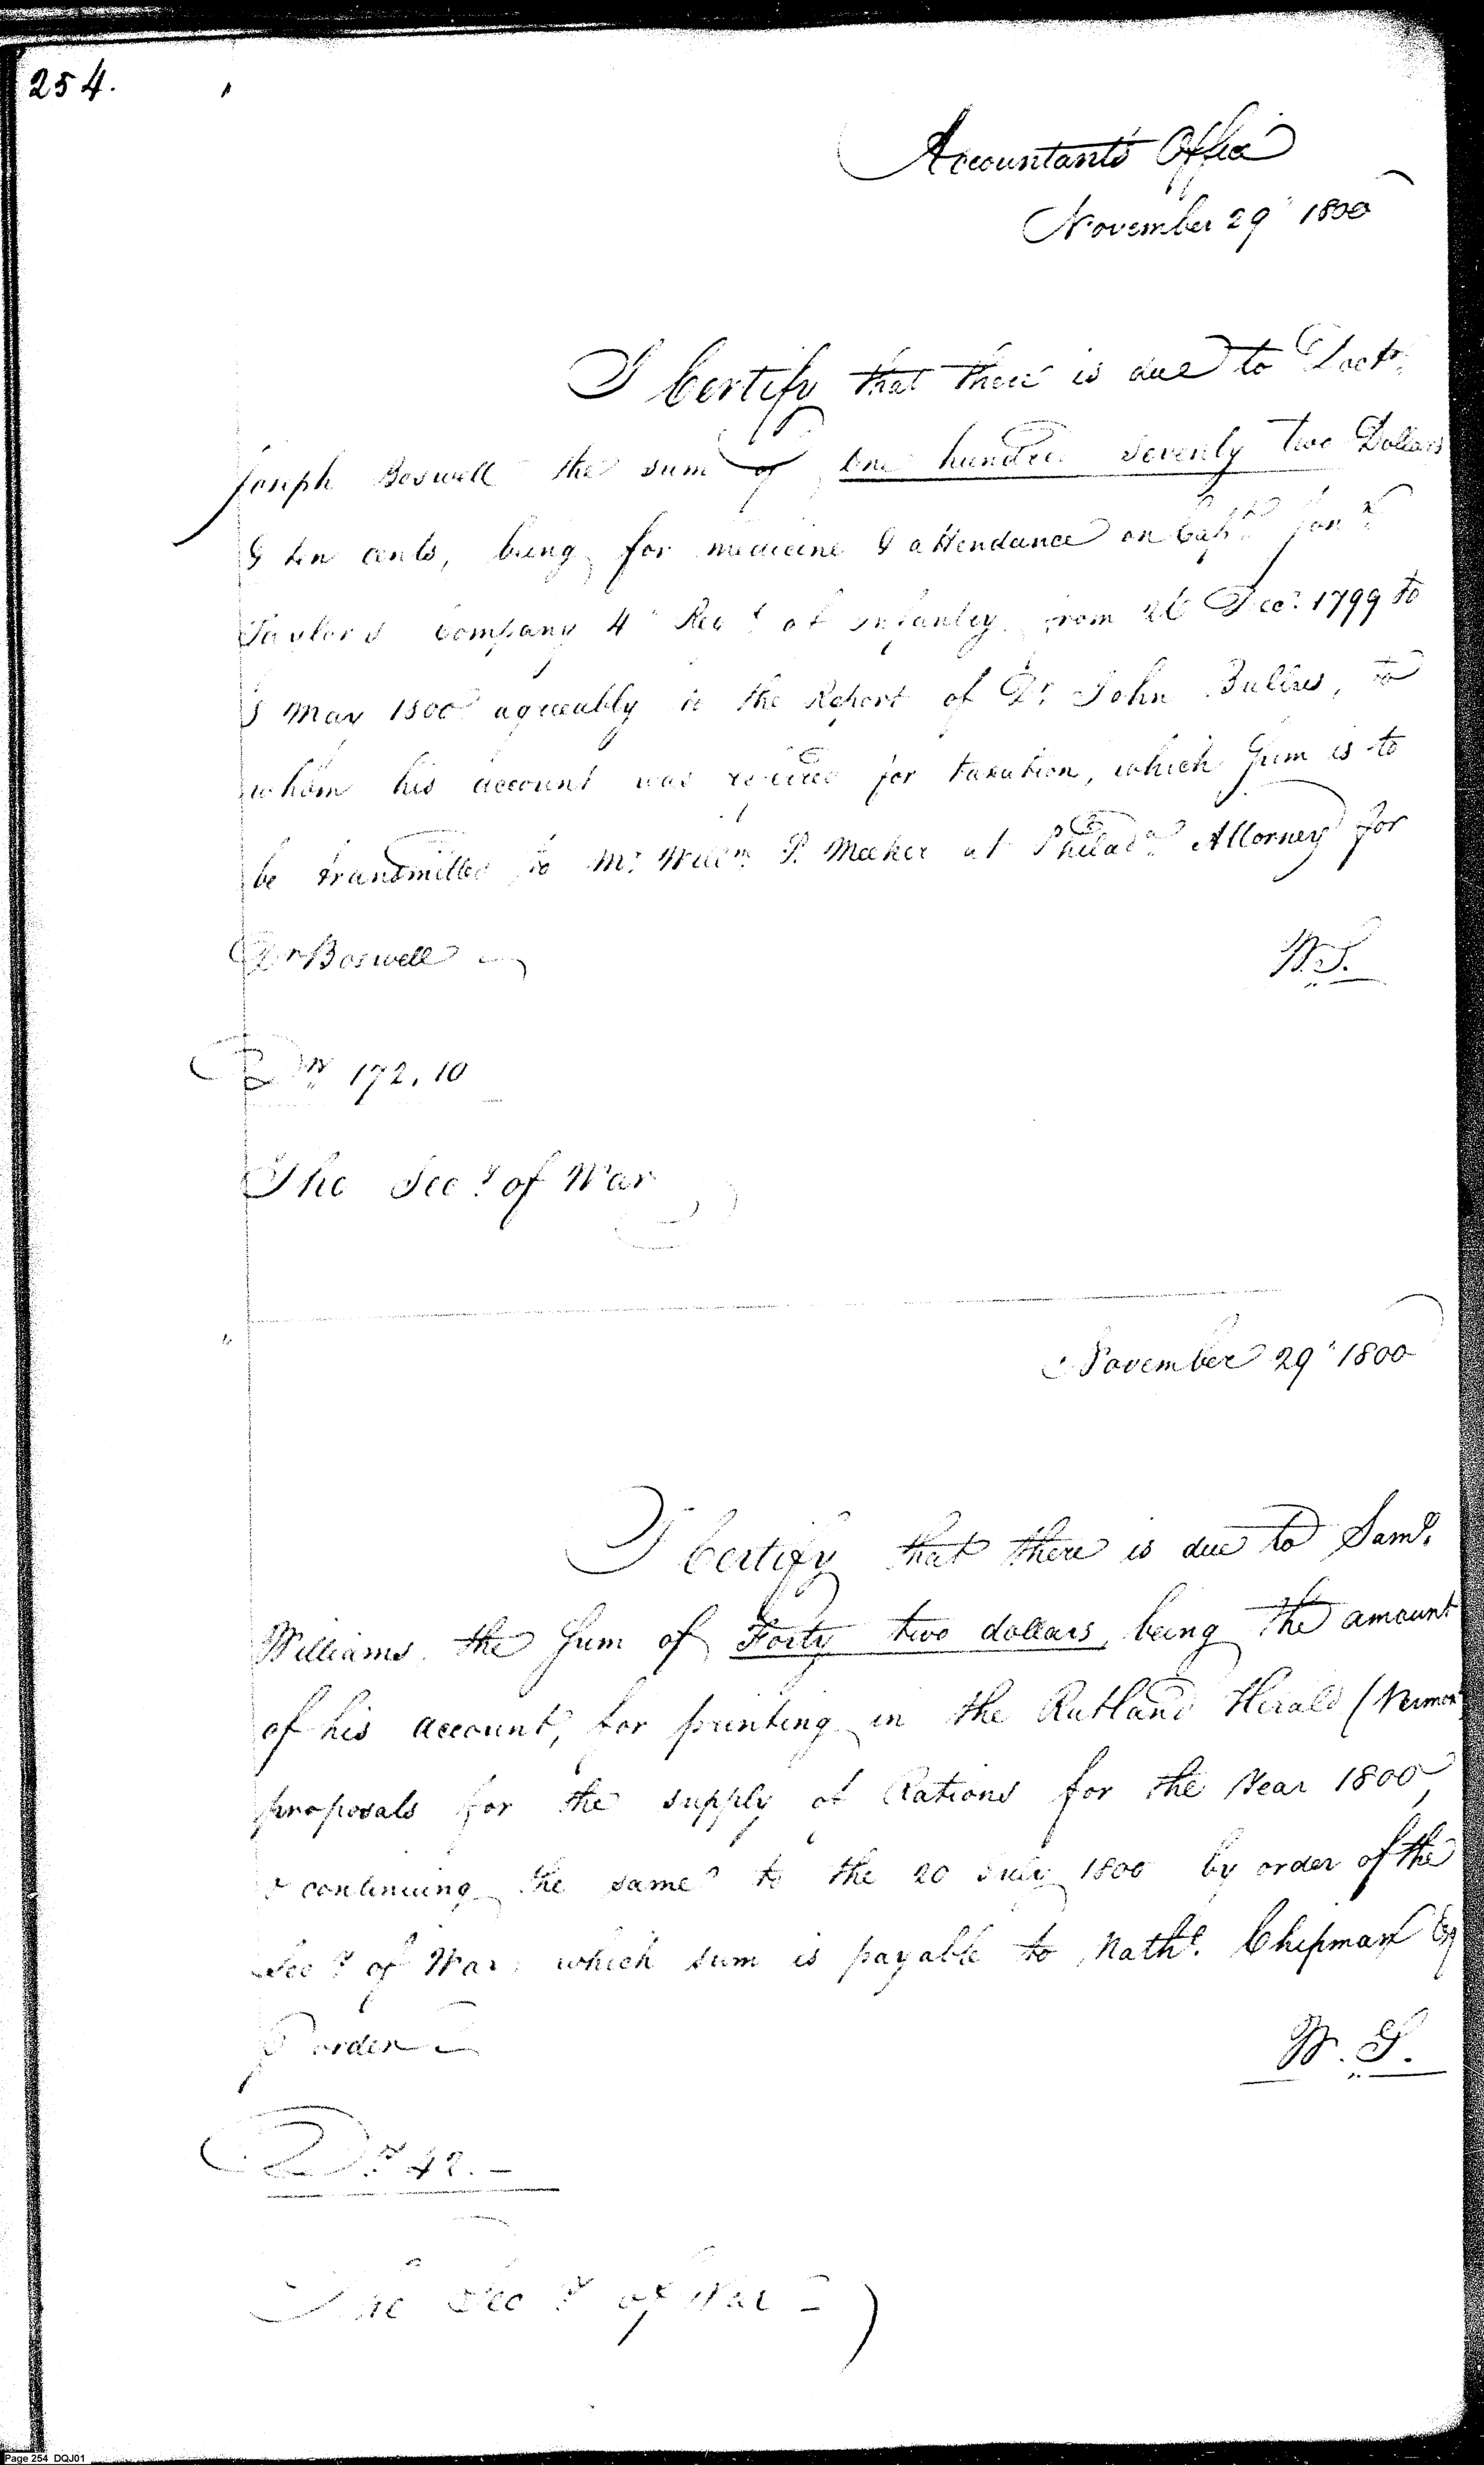 254.
Accountants Office
November 29" 1800
I Certify that there is due to Doctr.
Joseph Boswell the sum of one hundred seventy two Dollars
& ten cents, being for medicine & attendance on Capt. Jona.
Taylors Company 4" Regt. of Infantry from 26 Decr. 1799 to
May 1800 agreeably to the Report of Dr. John Bullus, to
whom his account was referred for taxation, which Sum is to
be transmitted to Mr. Willm. P. Meeker at Philada. Attorney for
Dr Boswell
W.S.
Drs 172,10
The Secy. of War
November 29" 1800
I Certify that there is due to Saml.
Williams the Sum of Forty two dollars, being the amount
of his account, for printing in the Rutland Herald (Vermont
proposals for the supply of Rations for the Year 1800,
& continuing the same to the 20 July 1800 by order of the
Secy. of War, which sum is payable to Nathl. Chipman Esq
P order
W.S.
Drs 42.-
The Secy of War
Page 254 DQJ01